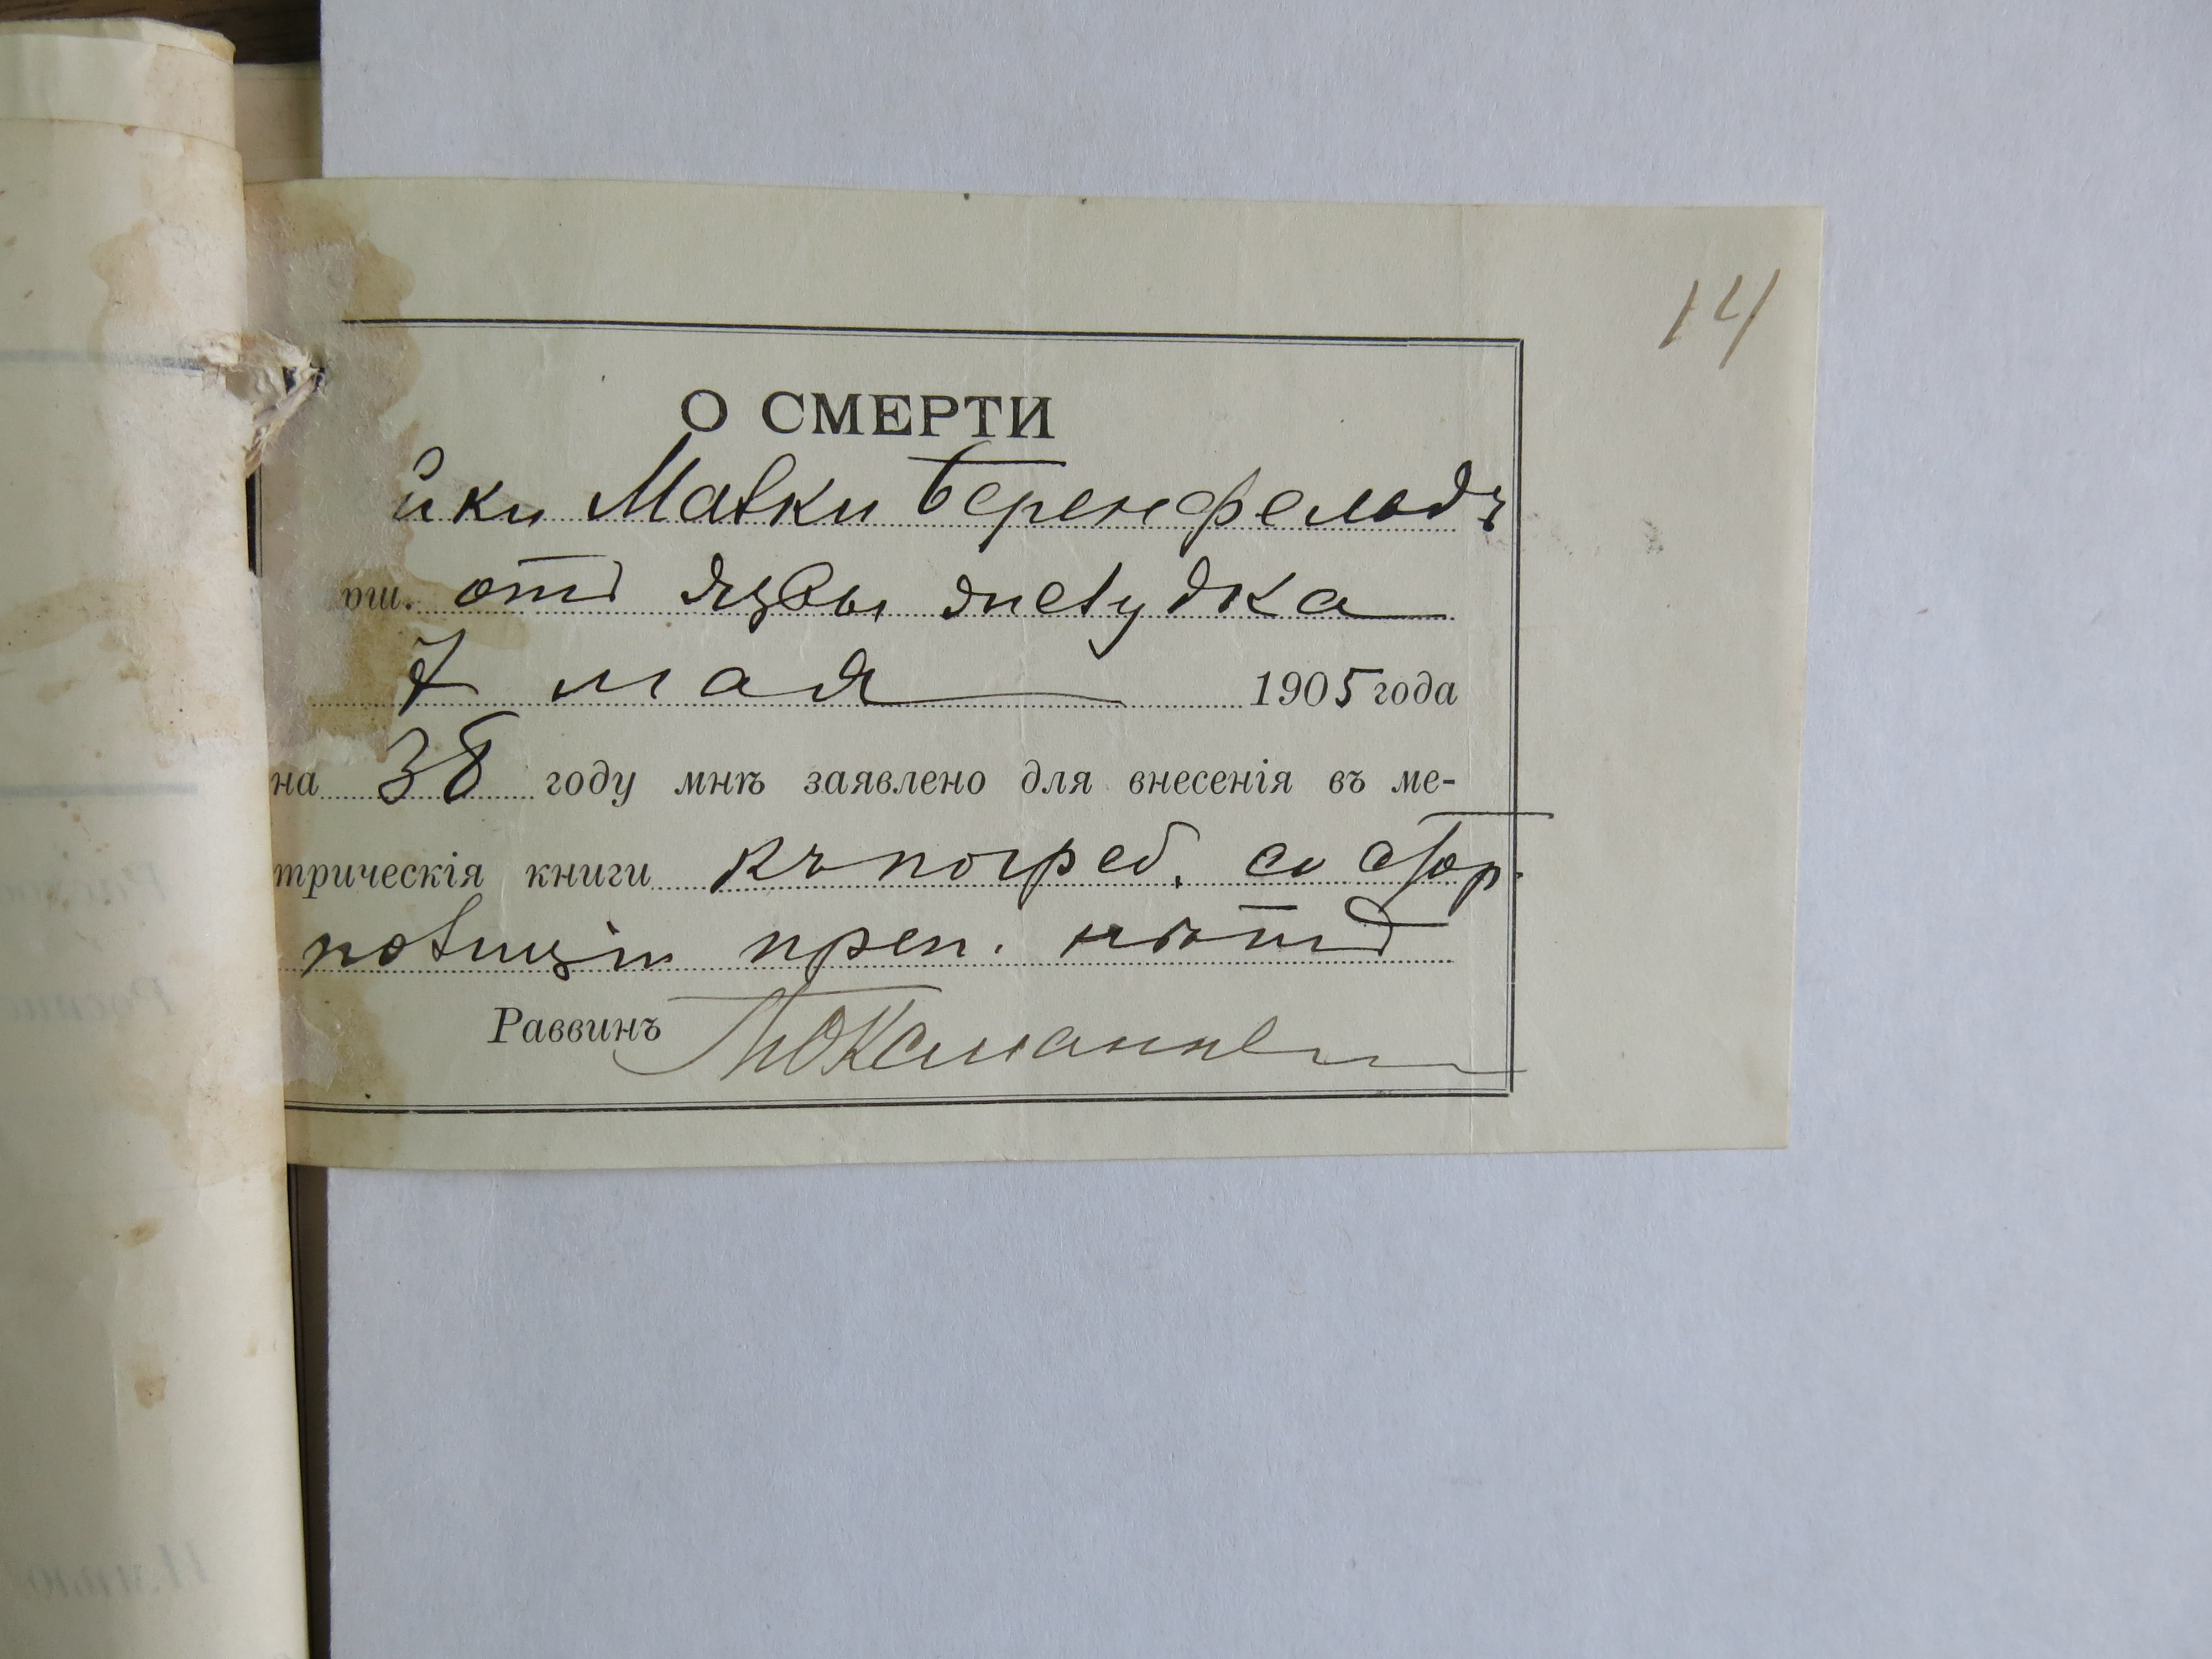 14
О СМЕРТИ
йки Малки Беренфельдъ
ш. отъ язвы желудка
7 мая 1905 года
на 38 году мнѣ заявлено для внесенія въ ме-
трическія книги къ погреб. со стор.
полиціи преп. нѣтъ
Раввинъ